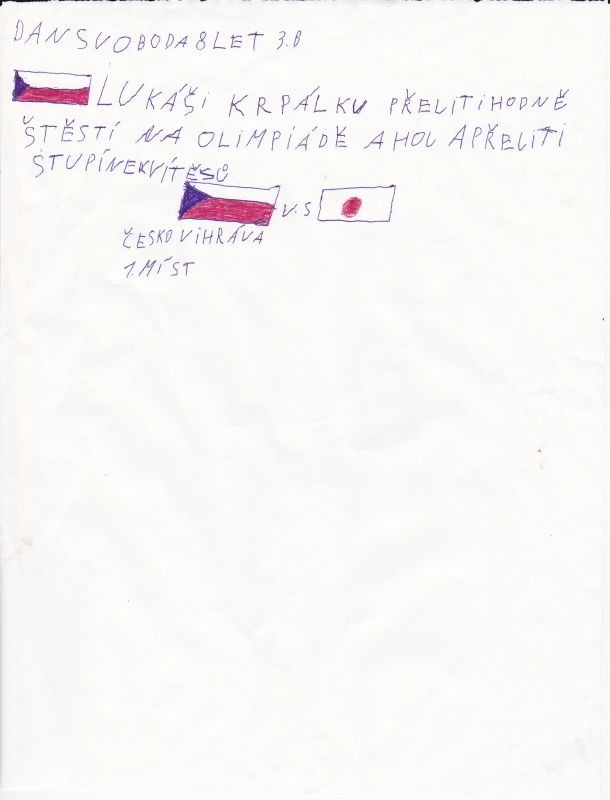 DAN SVOBODA 8 LET 3.B
LUKÁŠI KRPÁLKU PŘELITIHODNĚ
ŠTĚSTÍ NA OLIMPIÁDĚ AHOU APŘELITI
STUPÍNEKVÍTĚSŮ
V.S
ČESKO VIHRÁVA
1. MÍST